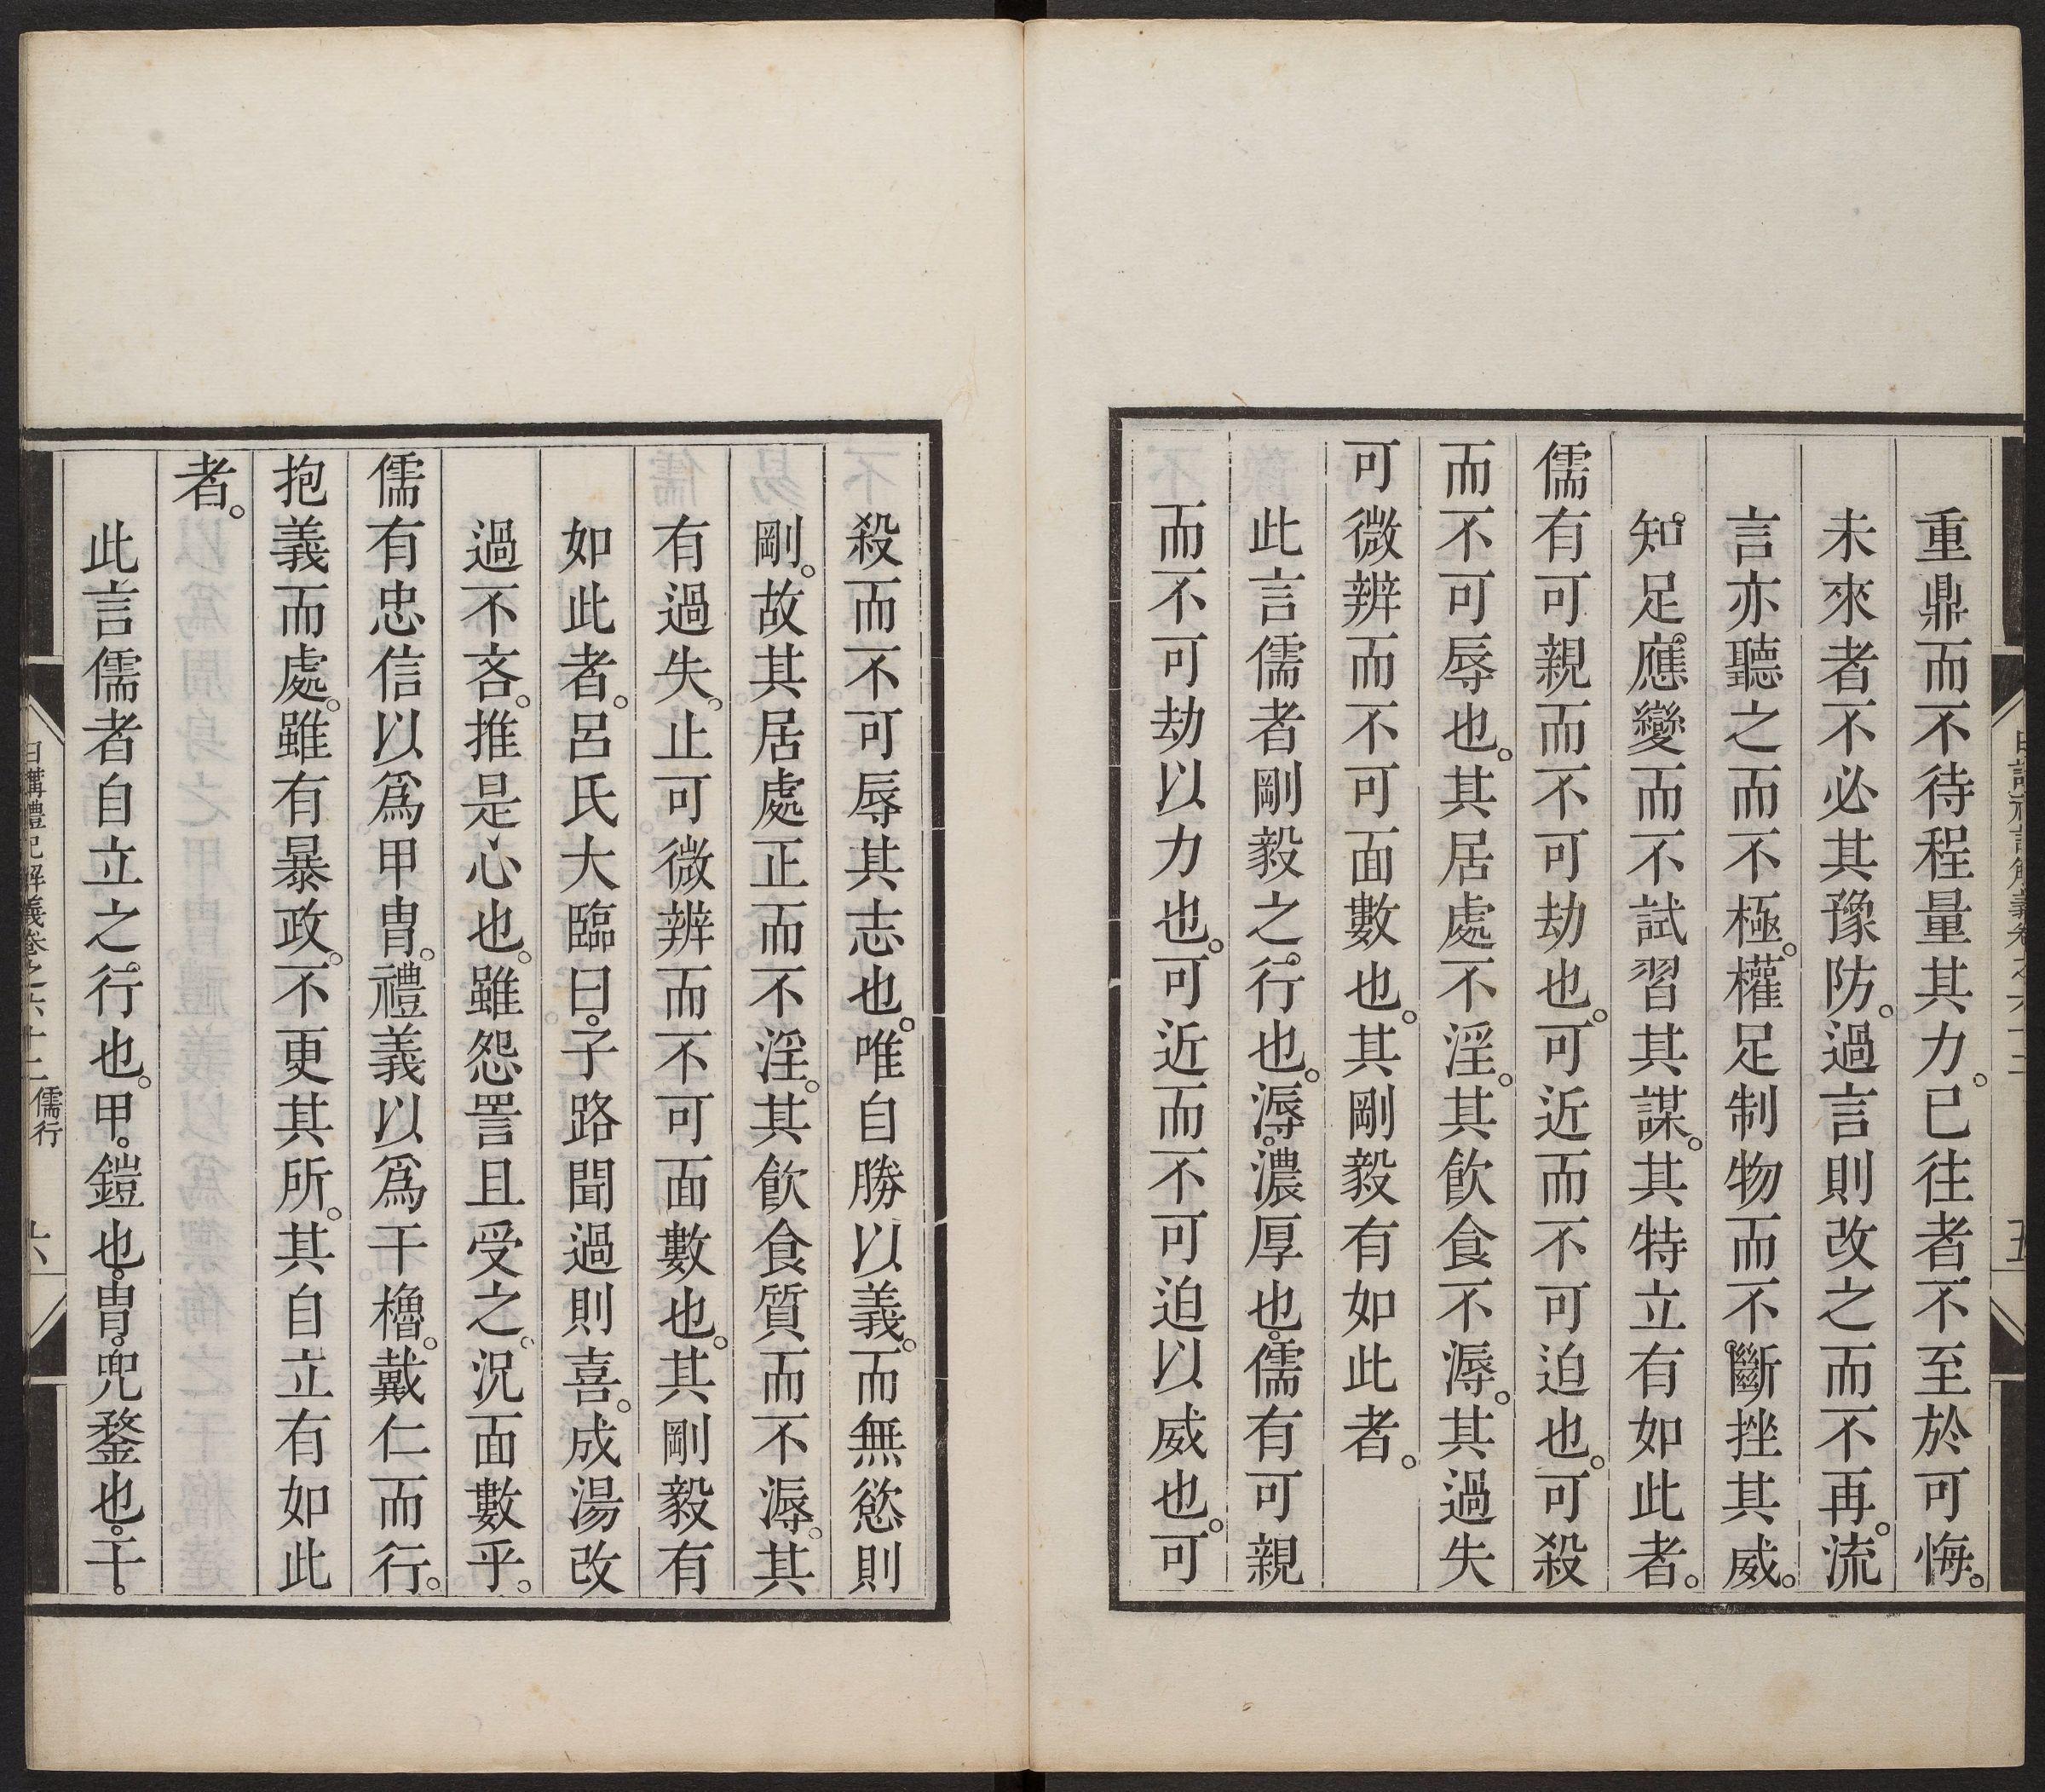 重鼎而不待程量其力。已往者不至於可悔。
未來者不必其豫防。過言則改之而不再。流
言亦聽之而不極。權足制物而不斷挫其威。
知足應變而不試習其謀。其特立有如此者。
儒有可親而不可劫也。可近而不可迫也。可殺
而不可辱也。其居處不淫。其飲食不溽。其過失
可微辨而不可面數也。其剛毅有如此者。
此言儒者剛毅之行也。溽。濃厚也。儒有可親
而不可劫以力也。可近而不可迫以威也。可
殺而不可辱其志也。唯自勝以義。而無慾則
剛。故其居處正而不淫。其飲食質而不溽。其
有過失。止可微辨而不可面數也。其剛毅有
如此者。呂氏大臨曰。子路聞過則喜。成湯改
過不吝。推是心也。雖怨詈且受之。況面數乎。
儒有忠信以為甲胄。禮義以為干櫓。戴仁而行。
抱義而處。雖有暴政。不更其所。其自立有如此
者。
此言儒者自立之行也。甲。鎧也。胄。兜鍪也。干。
日講禮記解義卷之六十二 儒行 六